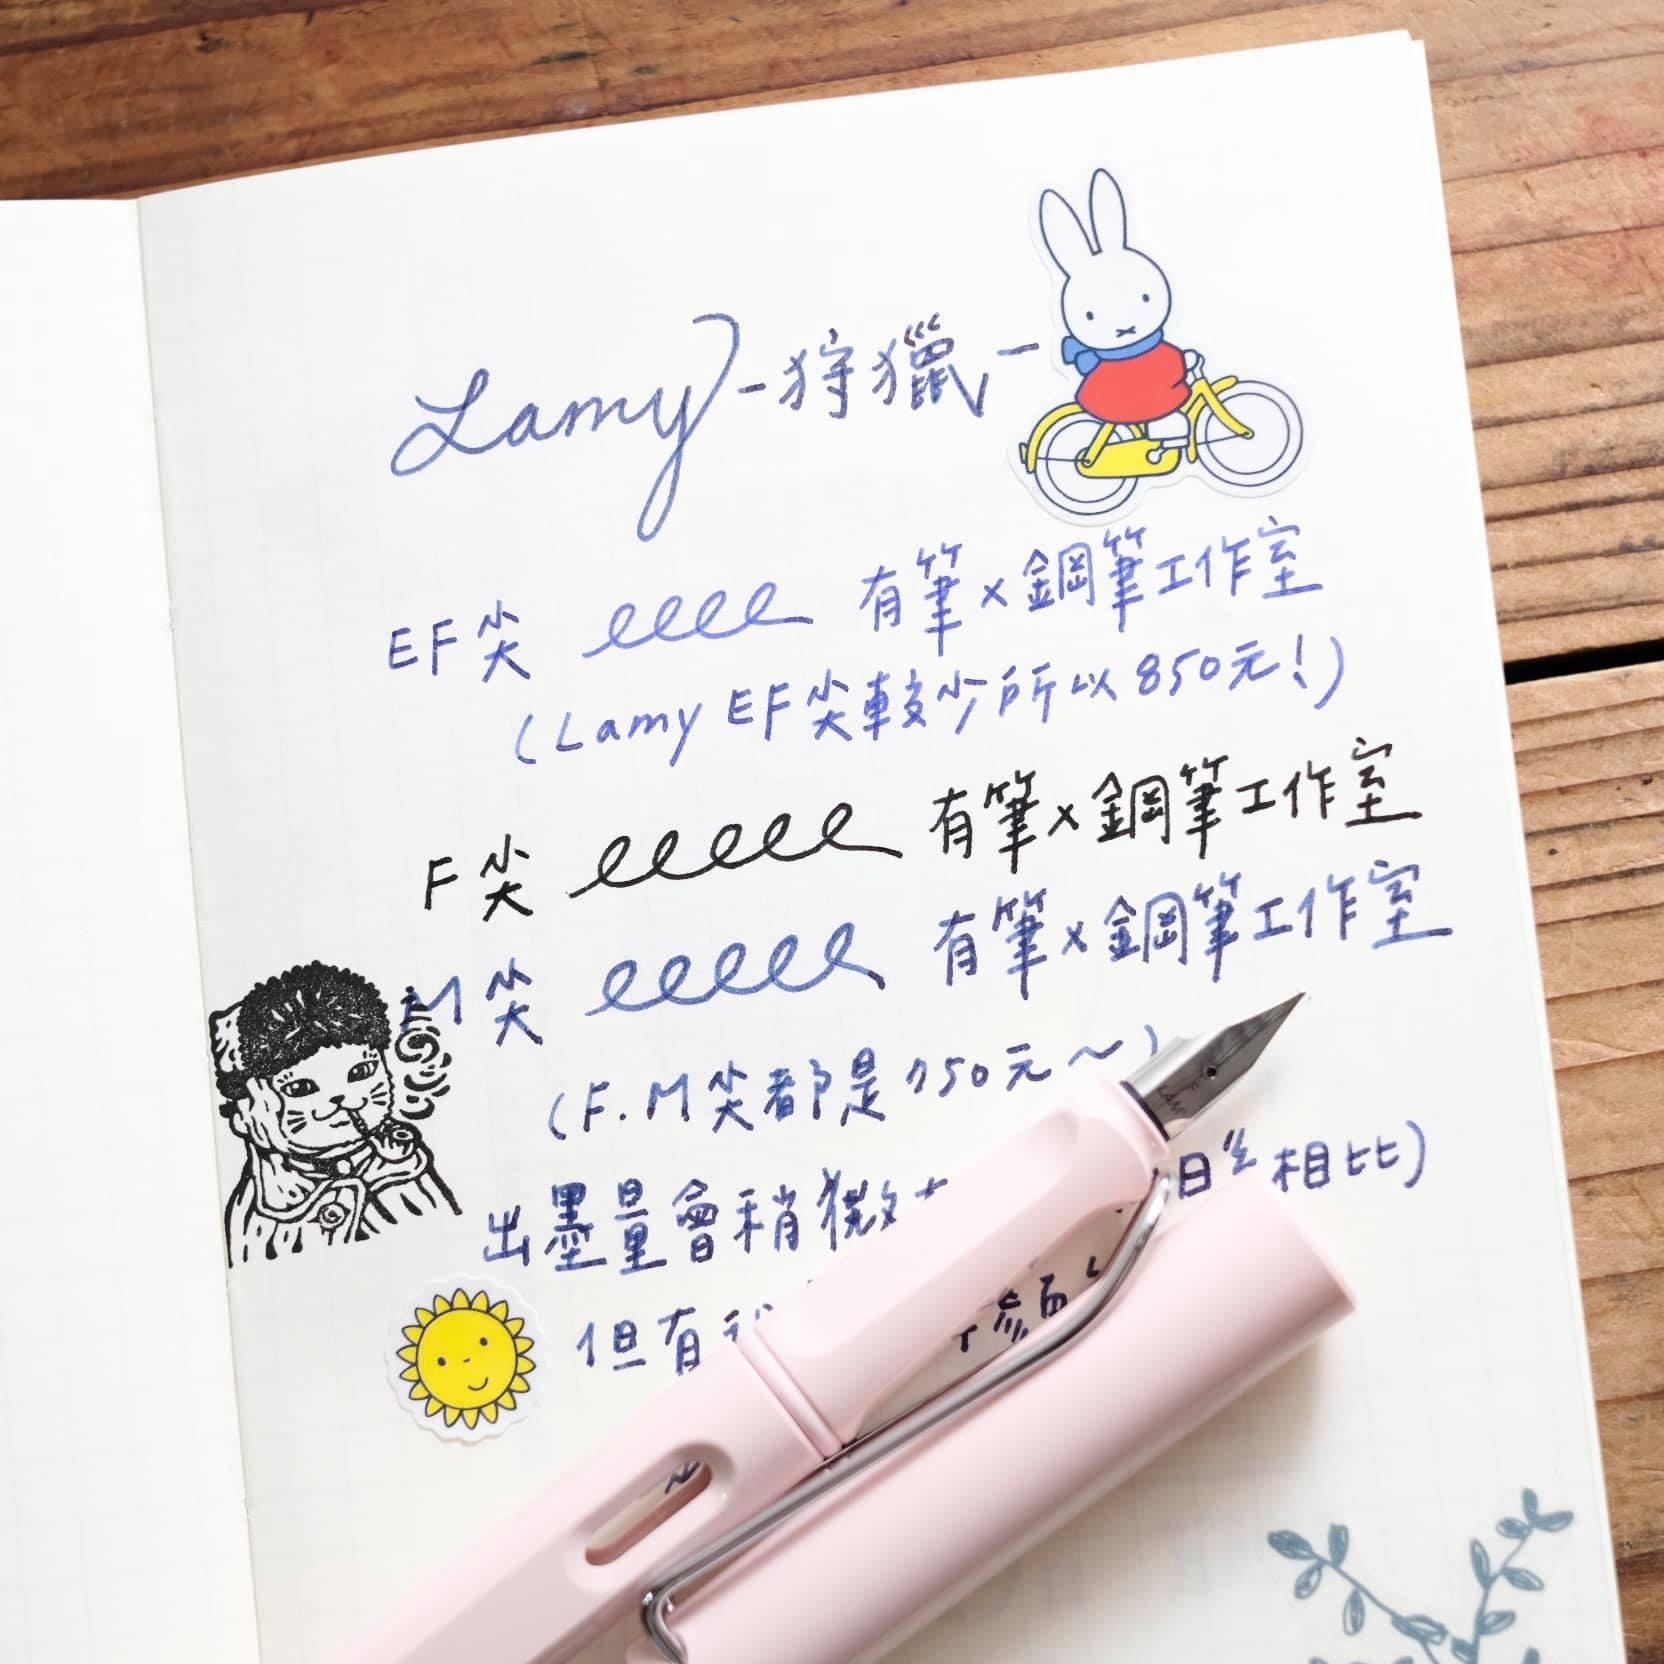 Lamy - 狩獵 -
EF尖 有筆x鋼筆工作室
(Lamy EF尖較少所以850元!)
F尖 有筆x鋼筆工作室
M尖 有筆x鋼筆工作室
(F.M尖都是750元~)
出墨量會稍微 日系相比)
但有
LAMY